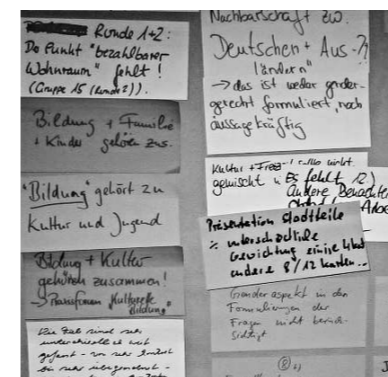 Runde 1+2:
Der Punkt "bezahlbarer
Wohnraum" fehlt!
(Gruppe 15 (Runde 2)).
Bildung + Familie
+ Kinder gehören zus.
"Bildung" gehört zu
Kultur und Jugend
Bildung + Kultur
gehören zusammen!
→ Transfer in "Kulturelle
Bildung"
Die Ziele sind sehr
unterschiedlich weit
gefasst -
Nachbarschaft zw.
Deutschen + Aus-?
ländern"
→ das ist weder gender-
gerecht formuliert, noch
aussagekräftig
Kultur +
gemischt
Es fehlt 12)
Andere
Präsentation Stadtteile
% unterschiedliche
Gewichtung einige 4
andere 8/12 Karten...
Genderaspekt in den
Formulierungen der
Fragen nicht berück-
sichtigt